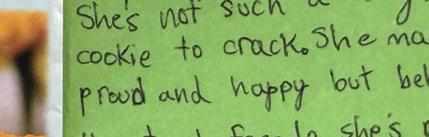 She's not such a
cookie to crack. She ma
proud and happy but bel
she's